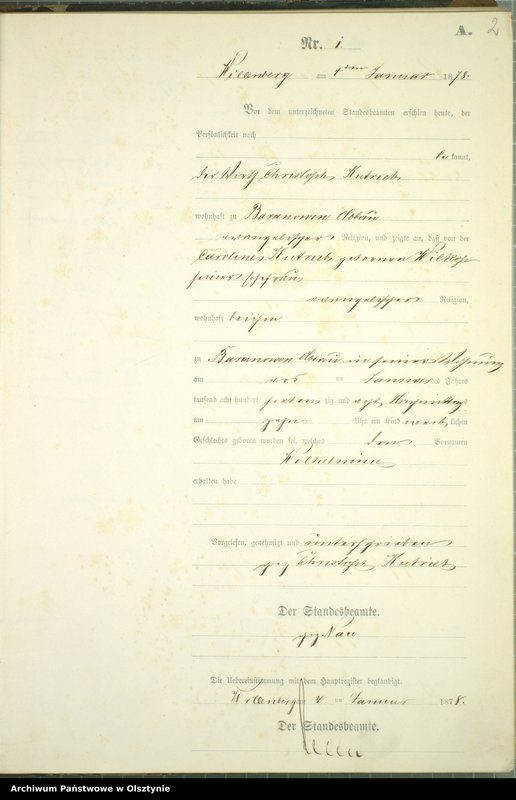 A. 2
Nr. 1
Willenberg am 4ten Januar 1878.
Vor dem unterzeichneten Standesbeamten erschien heute, der
Persönlichkeit nach
bekannt,
der Wirth Christoph
wohnhaft zu Baranowen Abbau
evangelischer Religion, und zeigte an, daß von der
Caroline geborenen
seiner Ehefrau
evangelischer Religion,
wohnhaft bei ihm
zu Baranowen Abbau in seiner Wohnung
am Januar des Jahrs
tausend acht hundert siebenzig und acht
um zehn Uhr ein Kind weiblichen
Geschlechts geboren worden sei, welches den Vornamen
Wilhelmine
erhalten habe
Vorgelesen, genehmigt und unterschrieben
gez Christoph
Der Standesbeamte.
gez Nau
Die Uebereinstimmung mit dem Hauptregister beglaubigt.
Willenberg am 4 ten Januar 1878.
Der Standesbeamte.
Archiwum Państwowe w Olsztynie